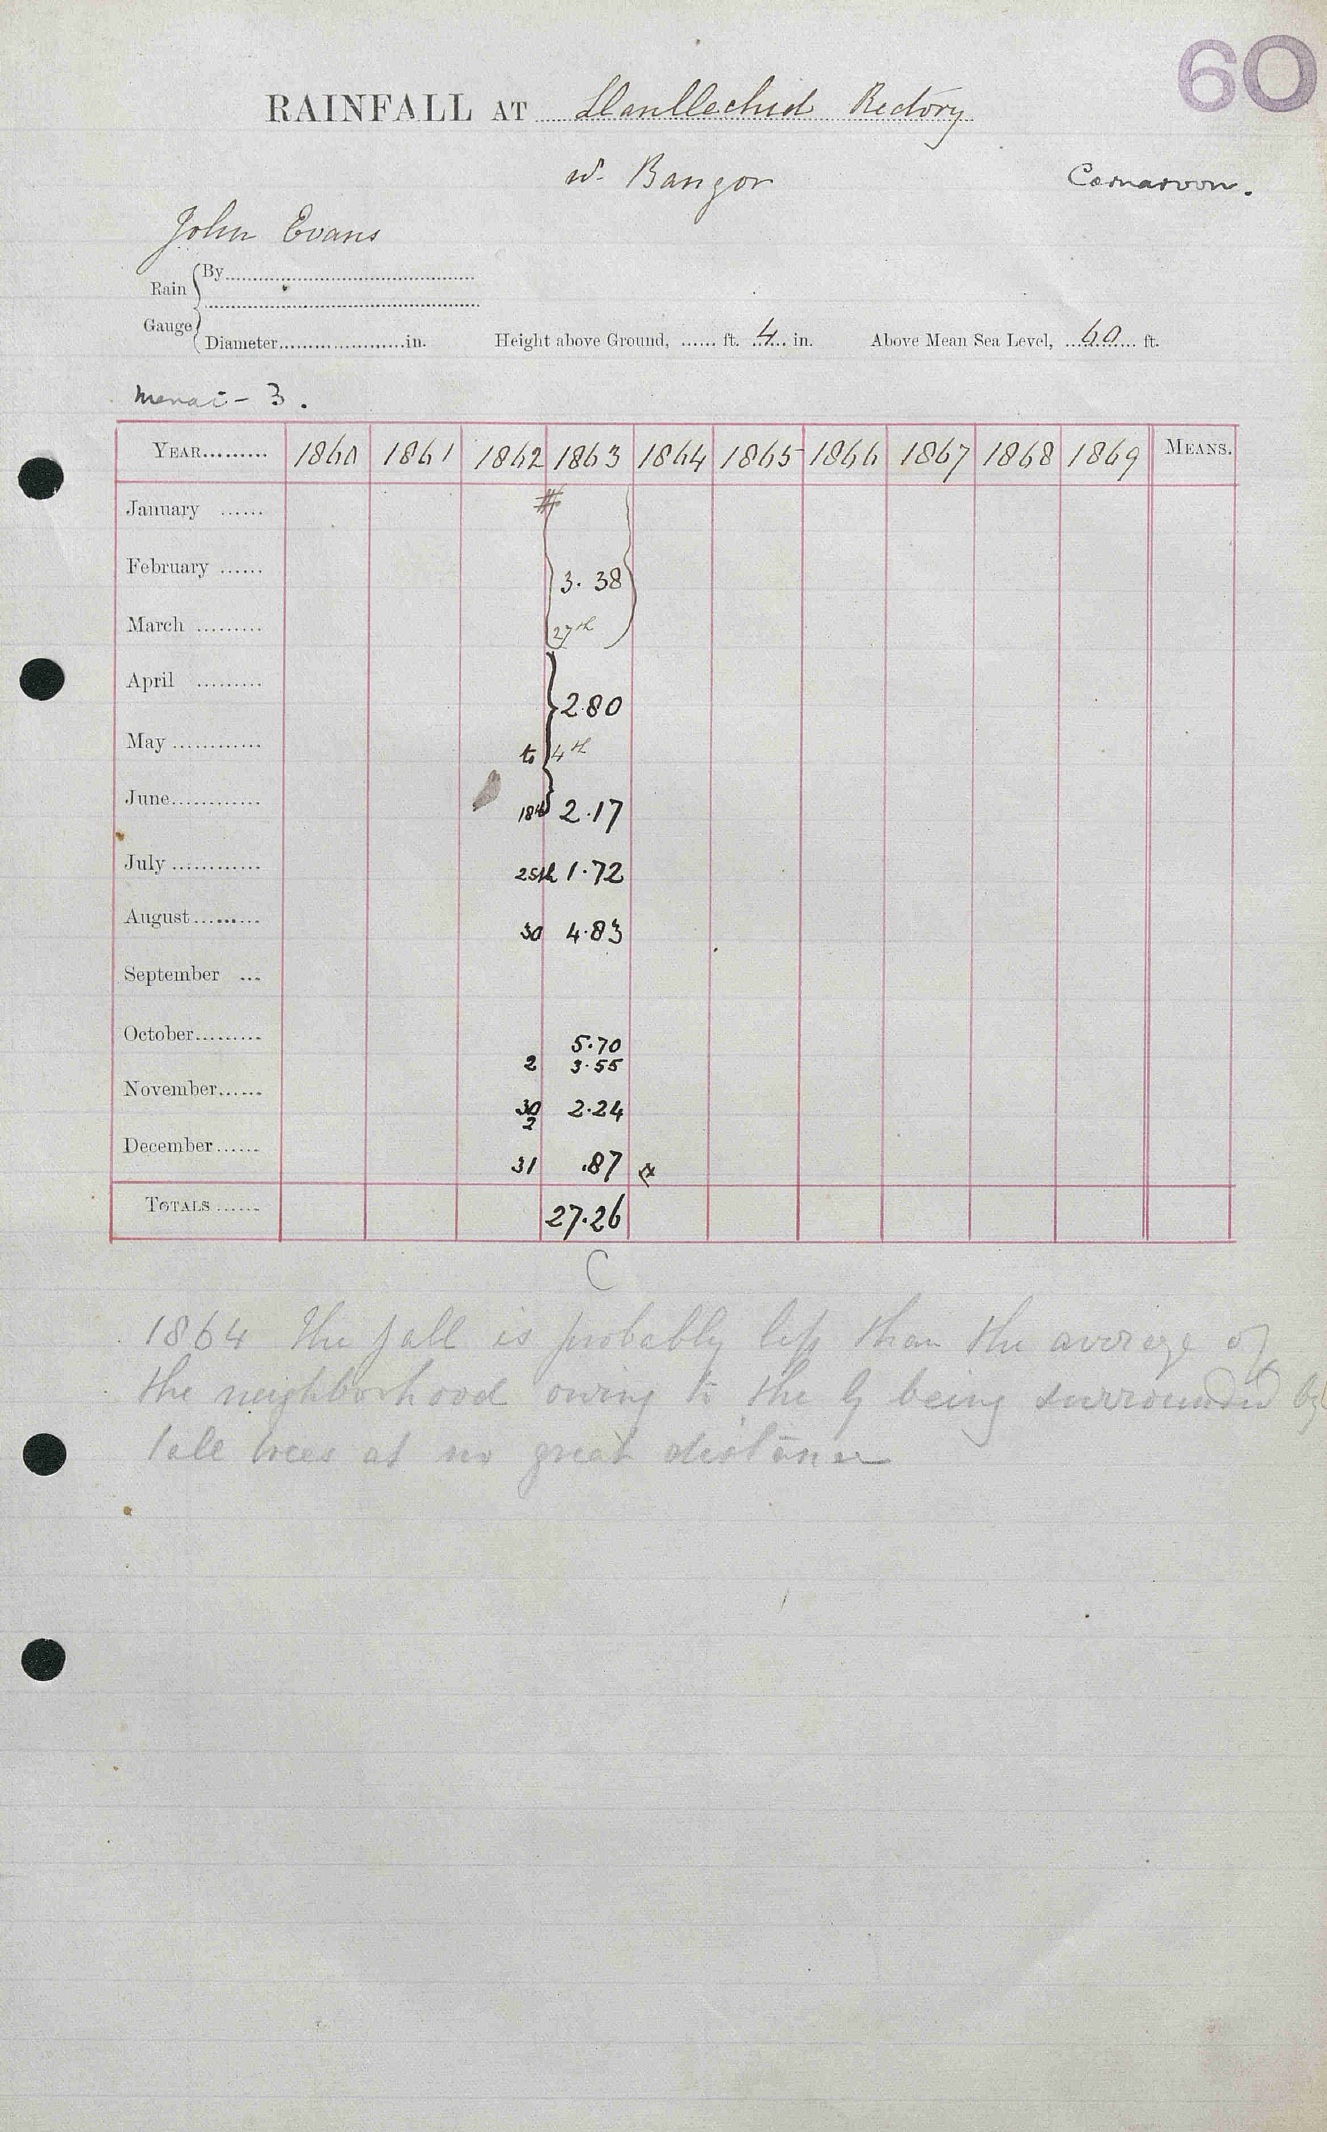 60
RAINFALL AT Llanllechid Rectory
nr. Bangor
Carnarvon.
John Evans
Rain Gauge
By
Diameter in.
Height above Ground, ft. 4 in.
Above Mean Sea Level, 60 ft.
Menai - 3.
YEAR 1860 1861 1862 1863 1864 1865 1866 1867 1868 1869 MEANS.
January #
February 3.38
March 27th
April 2.80
May to 4th
June 18th 2.17
July 25th 1.72
August 30 4.83
September
October 5.70
2 3.55
November 30 2.24
2
December 31 .87
TOTALS 27.26
C
1864 The fall is probably less than the average of
the neighborhood owing to the G being surrounded by
tall trees at no great distance